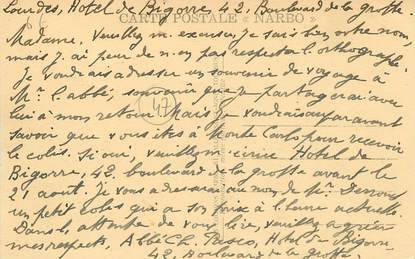 Lourdes, Hotel de Bigorre, 42, Boulevard de la grotte
CARTE POSTALE "NARBO"
Madame, veuillez m'excuser, je sais bien votre nom,
mais j'ai peur de n'en pas respecter l'orthographe.
Je voudrais adresser un souvenir de voyage à
Mr. l'abbé; souvenir que je partagerai avec
lui à mon retour. Mais je voudrais auparavant
47
savoir que vous êtes à Monte Carlo pour recevoir
le colis. Si oui, veuillez m'écrire Hotel de
Bigorre, 42, boulevard de la grotte avant le
21 août. Je vous adresserai au nom de Mr.
un petit colis qui a son prix à l'heure actuelle.
Dans l'attente de vous lire, veuillez agréer
mes respects. Abbé Ch. Pasco, Hotel de Bigorre,
42, Boulevard de la grotte.